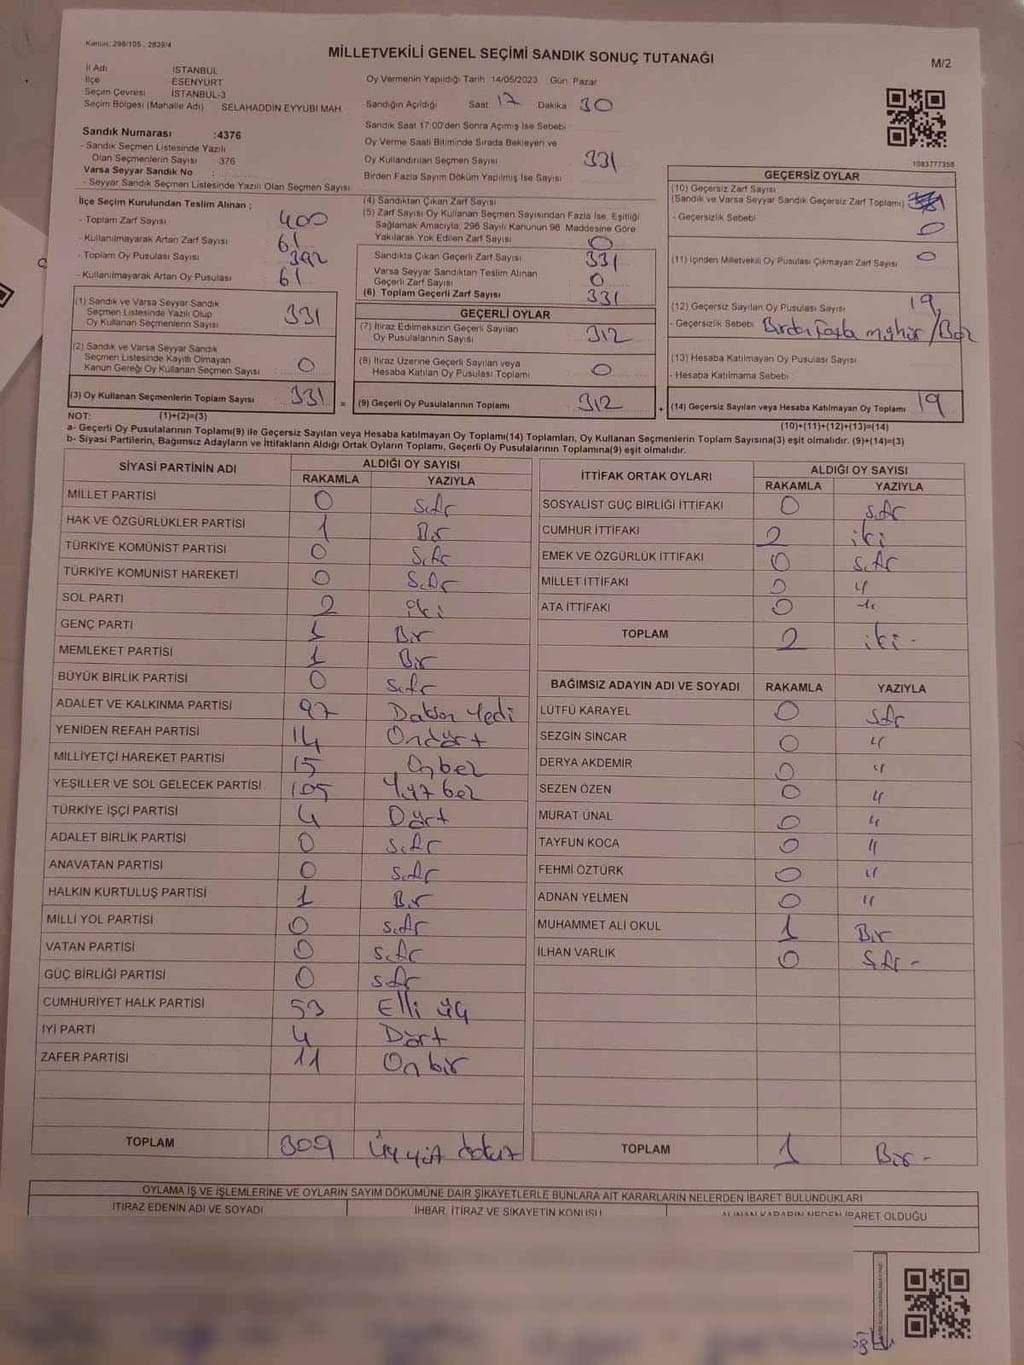 Kanun: 298/105 , 2839/4
MİLLETVEKİLİ GENEL SEÇİMİ SANDIK SONUÇ TUTANAĞI
M/2
İl Adı İSTANBUL
İlçe ESENYURT
Seçim Çevresi İSTANBUL-3
Seçim Bölgesi (Mahalle Adı) SELAHADDİN EYYUBİ MAH.
Oy Vermenin Yapıldığı Tarih 14/05/2023 Gün: Pazar
Sandığın Açıldığı Saat 17 Dakika 30
Sandık Saat 17:00'den Sonra Açılmış İse Sebebi
Sandık Numarası :4376
- Sandık Seçmen Listesinde Yazılı
Olan Seçmenlerin Sayısı : 376
Varsa Seyyar Sandık No :
- Seyyar Sandık Seçmen Listesinde Yazılı Olan Seçmen Sayısı
Oy Verme Saati Bitiminde Sırada Bekleyen ve
Oy Kullandırılan Seçmen Sayısı 331
Birden Fazla Sayım Döküm Yapılmış İse Sayısı
1083777358
İlçe Seçim Kurulundan Teslim Alınan ;
- Toplam Zarf Sayısı 400
- Kullanılmayarak Artan Zarf Sayısı 61
- Toplam Oy Pusulası Sayısı 392
- Kullanılmayarak Artan Oy Pusulası 61
(1) Sandık ve Varsa Seyyar Sandık
Seçmen Listesinde Yazılı Olup
Oy Kullanan Seçmenlerin Sayısı 331
(2) Sandık ve Varsa Seyyar Sandık
Seçmen Listesinde Kayıtlı Olmayan
Kanun Gereği Oy Kullanan Seçmen Sayısı 0
(3) Oy Kullanan Seçmenlerin Toplam Sayısı 331
(4) Sandıktan Çıkan Zarf Sayısı
(5) Zarf Sayısı Oy Kullanan Seçmen Sayısından Fazla İse, Eşitliği
Sağlamak Amacıyla, 298 Sayılı Kanunun 98. Maddesine Göre
Yakılarak Yok Edilen Zarf Sayısı 0
Sandıkta Çıkan Geçerli Zarf Sayısı 331
Varsa Seyyar Sandıktan Teslim Alınan
Geçerli Zarf Sayısı 0
(6) Toplam Geçerli Zarf Sayısı 331
GEÇERLİ OYLAR
(7) İtiraz Edilmeksizin Geçerli Sayılan
Oy Pusulalarının Sayısı 312
(8) İtiraz Üzerine Geçerli Sayılan veya
Hesaba Katılan Oy Pusulası Toplamı 0
= (9) Geçerli Oy Pusulalarının Toplamı 312
GEÇERSİZ OYLAR
(10) Geçersiz Zarf Sayısı
(Sandık ve Varsa Seyyar Sandık Geçersiz Zarf Toplamı)
- Geçersizlik Sebebi 0
(11) İçinden Milletvekili Oy Pusulası Çıkmayan Zarf Sayısı 0
(12) Geçersiz Sayılan Oy Pusulası Sayısı 19
- Geçersizlik Sebebi Birden Fazla mühür /Boz
(13) Hesaba Katılmayan Oy Pusulası Sayısı
- Hesaba Katılmama Sebebi
+ (14) Geçersiz Sayılan veya Hesaba Katılmayan Oy Toplamı 19
NOT: (1)+(2)=(3)
(10)+(11)+(12)+(13)=(14)
a- Geçerli Oy Pusulalarının Toplamı(9) ile Geçersiz Sayılan veya Hesaba katılmayan Oy Toplamı(14) Toplamları, Oy Kullanan Seçmenlerin Toplam Sayısına(3) eşit olmalıdır. (9)+(14)=(3)
b- Siyasi Partilerin, Bağımsız Adayların ve İttifakların Aldığı Ortak Oyların Toplamı, Geçerli Oy Pusulalarının Toplamına(9) eşit olmalıdır.
SİYASİ PARTİNİN ADI ALDIĞI OY SAYISI
RAKAMLA YAZIYLA
MİLLET PARTİSİ 0 Sıfır
HAK VE ÖZGÜRLÜKLER PARTİSİ 1 Bir
TÜRKİYE KOMÜNİST PARTİSİ 0 Sıfır
TÜRKİYE KOMÜNİST HAREKETİ 0 Sıfır
SOL PARTİ 2 iki
GENÇ PARTİ 1 Bir
MEMLEKET PARTİSİ 1 Bir
BÜYÜK BİRLİK PARTİSİ 0 Sıfır
ADALET VE KALKINMA PARTİSİ 97 Doksan Yedi
YENİDEN REFAH PARTİSİ 14 Ondört
MİLLİYETÇİ HAREKET PARTİSİ 15 Onbeş
YEŞİLLER VE SOL GELECEK PARTİSİ 105 Yüz beş
TÜRKİYE İŞÇİ PARTİSİ 4 Dört
ADALET BİRLİK PARTİSİ 0 Sıfır
ANAVATAN PARTİSİ 0 Sıfır
HALKIN KURTULUŞ PARTİSİ 1 Bir
MİLLİ YOL PARTİSİ 0 sıfır
VATAN PARTİSİ 0 sıfır
GÜÇ BİRLİĞİ PARTİSİ 0 sıfır
CUMHURİYET HALK PARTİSİ 53 Elli üç
İYİ PARTİ 4 Dört
ZAFER PARTİSİ 11 On bir
TOPLAM 309 Üç yüz dokuz
İTTİFAK ORTAK OYLARI ALDIĞI OY SAYISI
RAKAMLA YAZIYLA
SOSYALİST GÜÇ BİRLİĞİ İTTİFAKI 0 sıfır
CUMHUR İTTİFAKI 2 iki
EMEK VE ÖZGÜRLÜK İTTİFAKI 0 Sıfır
MİLLET İTTİFAKI 0 "
ATA İTTİFAKI 0 "
TOPLAM 2 iki -
BAĞIMSIZ ADAYIN ADI VE SOYADI RAKAMLA YAZIYLA
LÜTFÜ KARAYEL 0 sıfır
SEZGİN SİNCAR 0 "
DERYA AKDEMİR 0 "
SEZEN ÖZEN 0 "
MURAT ÜNAL 0 "
TAYFUN KOCA 0 "
FEHMİ ÖZTÜRK 0 "
ADNAN YELMEN 0 "
MUHAMMET ALİ OKUL 1 Bir
İLHAN VARLIK 0 Sıfır -
TOPLAM 1 Bir -
OYLAMA İŞ VE İŞLEMLERİNE VE OYLARIN SAYIM DÖKÜMÜNE DAİR ŞİKAYETLERLE BUNLARA AİT KARARLARIN NELERDEN İBARET BULUNDUKLARI
İTİRAZ EDENİN ADI VE SOYADI İHBAR, İTİRAZ VE ŞİKAYETİN KONUSU ALINAN KARARIN NEDEN İBARET OLDUĞU